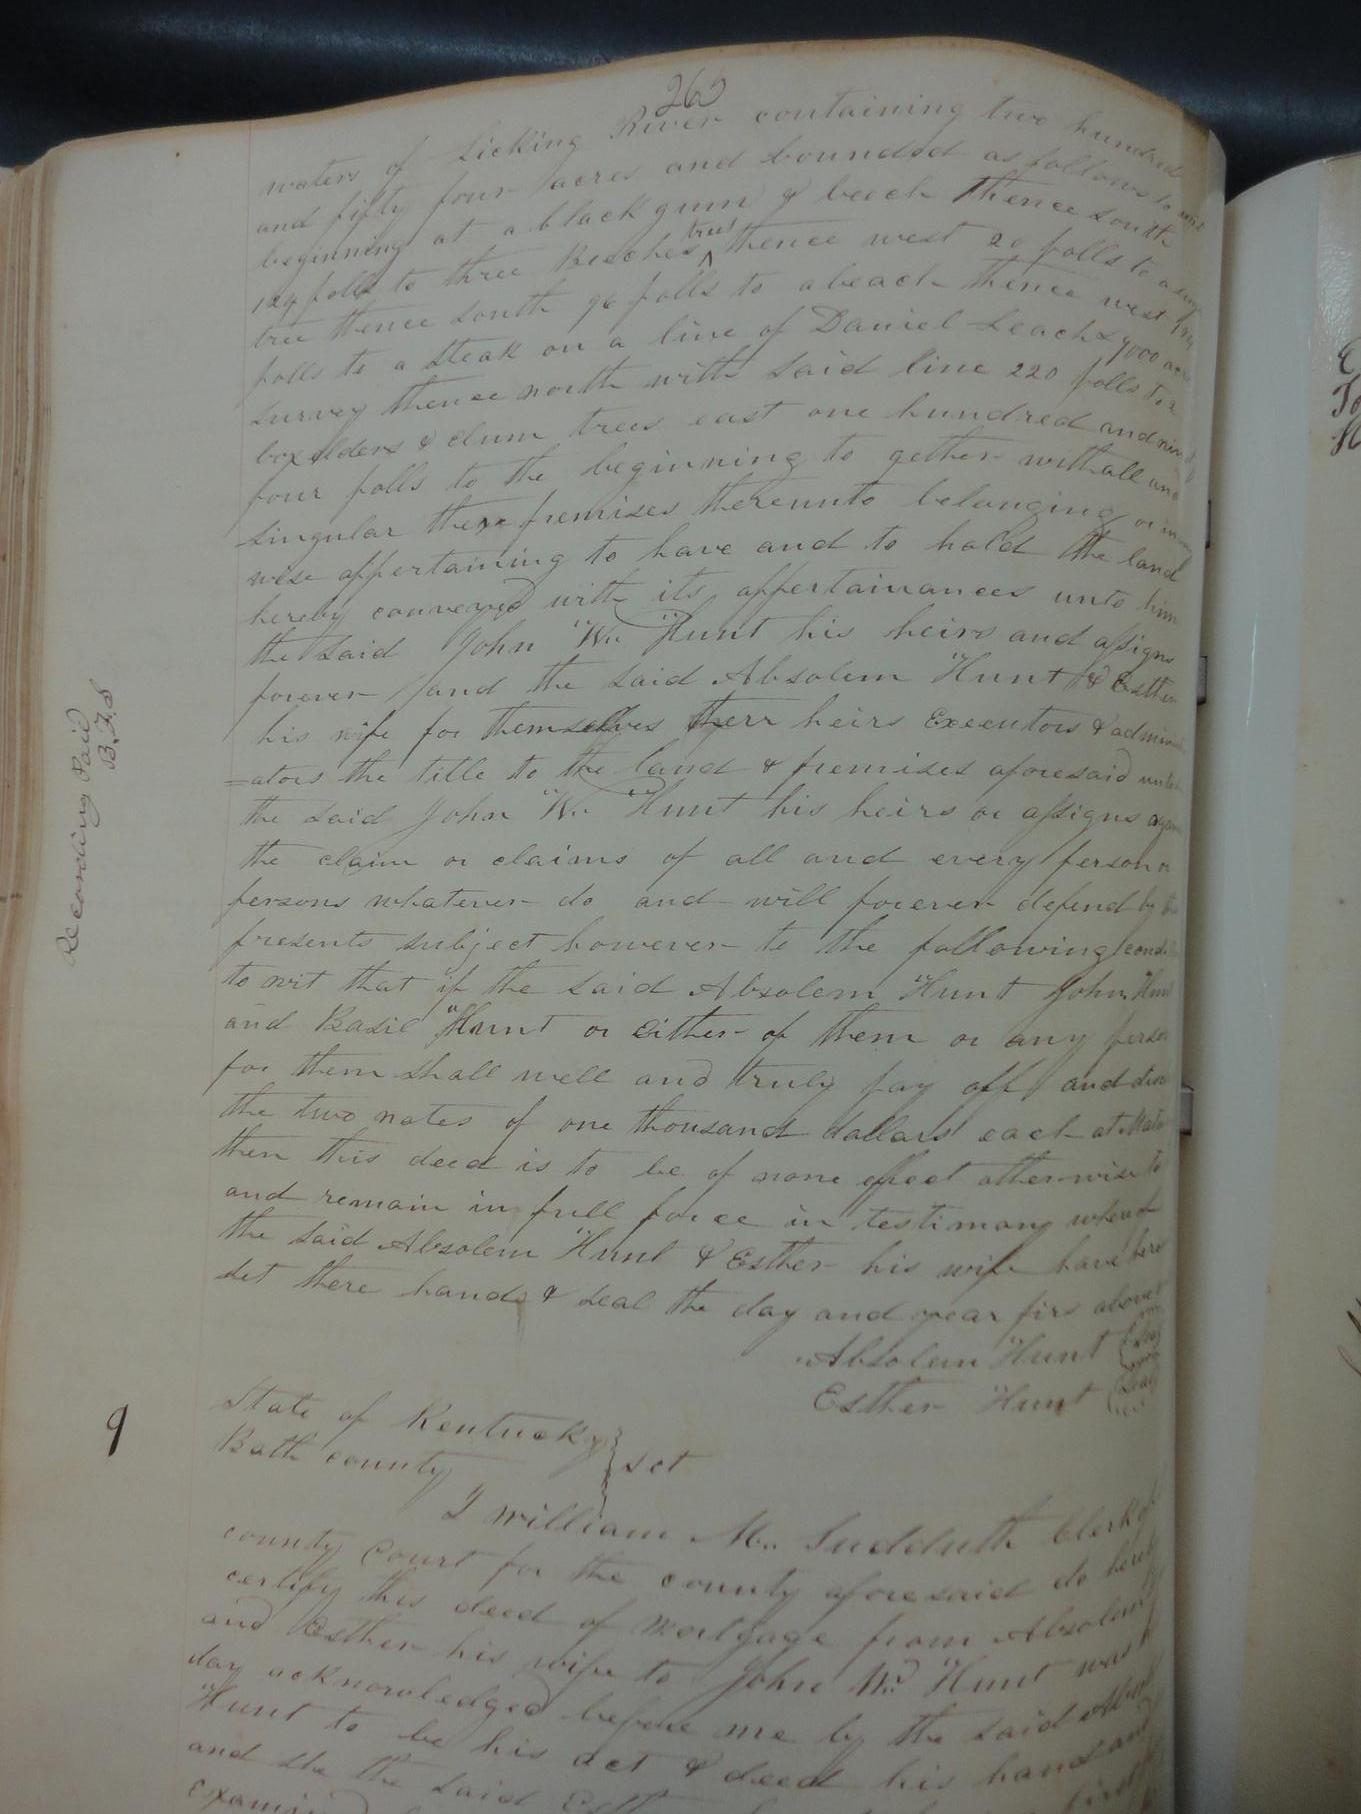 262
waters of Licking River containing two hundred
and fifty four acres and bounded as follows to wit
beginning at a black gum & beech thence south
124 polls to three Beeches trees thence west 20 polls to a
tree thence south 96 polls to a beach thence west
polls to a steak on a line of Daniel Leachs 9000
survey thence north with said line 220 polls to a
box elders & elum trees east one hundred and
four polls to the beginning to gether with all and
singular the premises thereunto belonging or in any
wise appertaining to have and to hold the land
hereby conveyed with its appertainances unto him
the said John W. Hunt his heirs and assigns
forever and the said Absolem Hunt & Esther
his wife for themselves therr heirs Executors & admini
=ators the title to the land & premises aforesaid unto
the said John W. Hunt his heirs or assigns
the claim or claims of all and every person or
persons whatever do and will forever defend by
presents subject however to the following
to wit that if the said Absolem Hunt John Hunt
and Basil Hunt or Either of them or any person
for them shall well and truly pay off and
the two notes of one thousand dollars each at
then this deed is to be of none effect otherwise to
and remain in full force in testimony whereof
the said Absolem Hunt & Esther his wife have
set there hands & seal the day and year firs above
Absolem Hunt
Esther Hunt (Seal)
State of Kentucky
Bath county } sct
I william M. Sudduth Clerk of
county Court for the county aforesaid do hereby
certify this deed of Mortgage from Absolem
and Esther his wife to John W. Hunt was
day acknowledged before me by the said
Hunt to be his act & deed his hand and
and she the said
Recording Paid
B.F.S
9